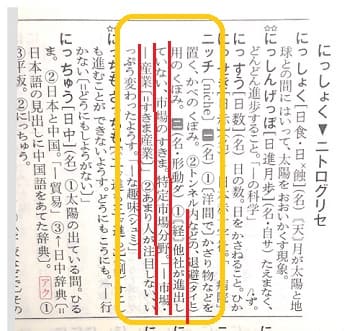 にっしょく▼ニトログリセ
にっしょく［日食・日×蝕］（名）〔天〕月が太陽と地
球との間にはいって、太陽をおおいかくす現象。
にっしんげっぽ［日進月歩］（名・自サ）たえまなく、
どんどん進歩すること。「―の科学」
にっすう［日数］（名）日の数。日をかさねること。ひか
ニッチ（niche）一（名）①〔洋間で〕かざり物などを
置く、かべのくぼみ。②トンネル内などの、退避（タイヒ）
用のくぼみ。二（名・形動ダ）①〔経〕他社が進出し
ていない、市場のすきま。特定市場分野。「―市場・
―産業〔＝すきま産業〕」②あまり人が注目しない、い
っぷう変わったようす。「―な趣味（シュミ）」
も進むことができないようす。どうにもこうにも。「―行
かない〔＝どうにもしようがない〕」
にっちゅう［日中］（名）①太陽の出ている間。ひる
ま。②日本と中国。「―貿易」③←日中辞典〔＝
日本語の見出しに中国語をあてた辞典〕。アク①
③平板。②にっちゅう。